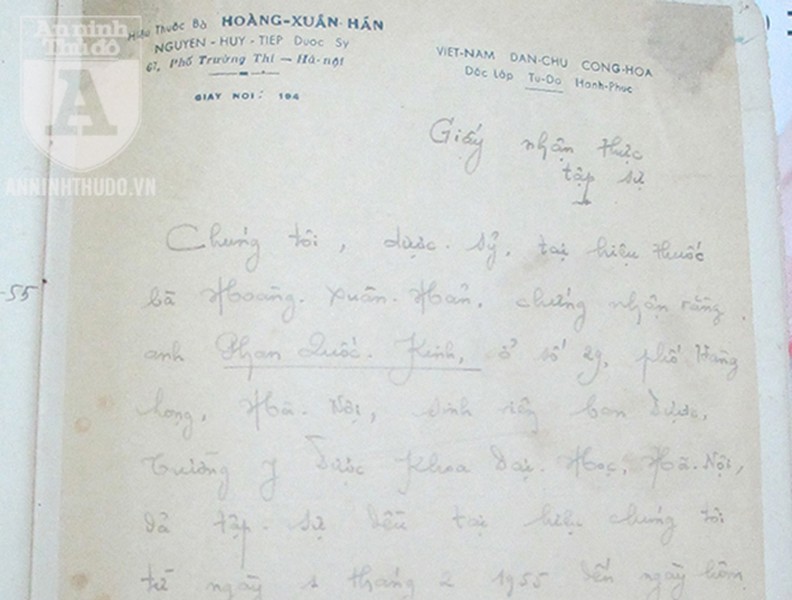 An ninh
Thủ đô
A
ANNINHTHUDO.VN
Hiệu Thuốc Bà HOÀNG-XUÂN-HÃN
NGUYEN-HUY-TIEP Duoc Sy
67, Phố Trường Thi - Hà-nội
GIAY NOI: 194
VIET-NAM DAN-CHU CONG-HOA
Dôc Lâp Tu-Do Hanh-Phuc
Giấy nhận thực
tập sự
Chúng tôi, dược-sỹ, tại hiệu thuốc
bà Hoàng-Xuân-Hãn, chứng nhận rằng
anh Phan Quốc-Kinh, ở số 29, phố Hàng
họng, Hà-Nội, sinh viên ban Dược,
Trường Y Dược Khoa Đại-Học, Hà-Nội,
đã tập-sự đều tại hiệu chúng tôi
từ ngày 1 tháng 2 1955 đến ngày hôm
-55